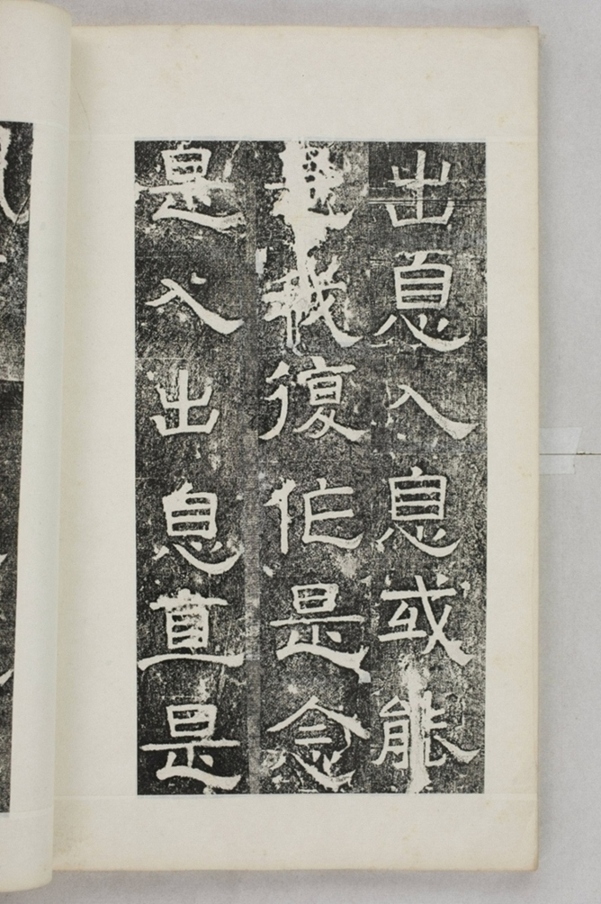 出息入息或能
是我復作是念
是入出息直是